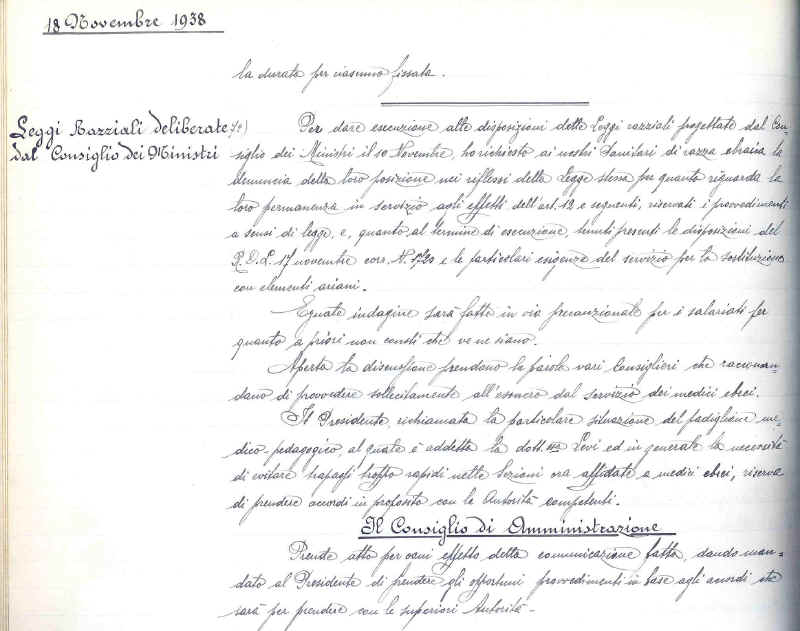 18 Novembre 1938
la durata per ciascuno fissata.
Leggi Razziali deliberate
dal Consiglio dei Ministri
7°) Per dare esecuzione alle disposizioni delle Leggi razziali progettate dal Con=
siglio dei Ministri il 10 Novembre, ho richiesto ai nostri Sanitari di razza ebraica la
denuncia della loro posizione nei riflessi della Legge stessa per quanto riguarda la
loro permanenza in servizio agli effetti dell'art. 12 e seguenti, riservati i provvedimenti
a sensi di legge e, quanto al termine di esecuzione, tenuti presenti le disposizioni del
R.D.L. 17 novembre corr. N. 1728 e le particolari esigenze del servizio per la sostituzione
con elementi ariani.
Eguale indagine sarà fatta in via precauzionale per i salariati per
quanto a priori non consti che ve ne siano.
Aperta la discussione prendono la parola vari Consiglieri che raccoman=
dano di provvedere sollecitamente all'esonero dal servizio dei medici ebrei.
Il Presidente, richiamata la particolare situazione del padiglione me=
dico-pedagogico, al quale è addetta la dott.ssa Levi ed in generale la necessità
di evitare trapassi troppo rapidi nelle Sezioni ora affidate a medici ebrei, riserva
di prendere accordi in proposito con le Autorità competenti.
Il Consiglio di Amministrazione
Prende atto per ogni effetto della comunicazione fatta, dando man=
dato al Presidente di prendere gli opportuni provvedimenti in base agli accordi che
sarà per prendere con le superiori Autorità.-